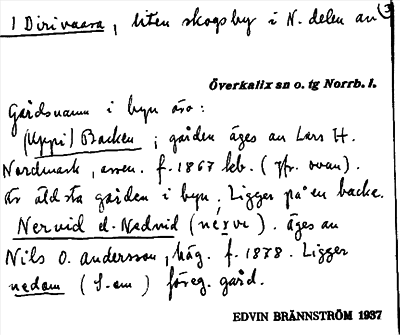 1 Dirivaara, liten skogsby i N. delen av 3
Överkalix sn o. tg Norrb. l.
Gårdsnamn i byn äro:
(Uppi) Backen ; gården äges av Lars H.
Nordmark, arren. f. 1867 hb. (jfr. ovan).
är äldsta gården i byn. Ligger på en backe.
Nervid el. Nedvid (nérve). äges av
Nils O. Andersson, häg. f. 1878. Ligger
nedom (S. om) föreg. gård.
EDVIN BRÄNNSTRÖM 1937